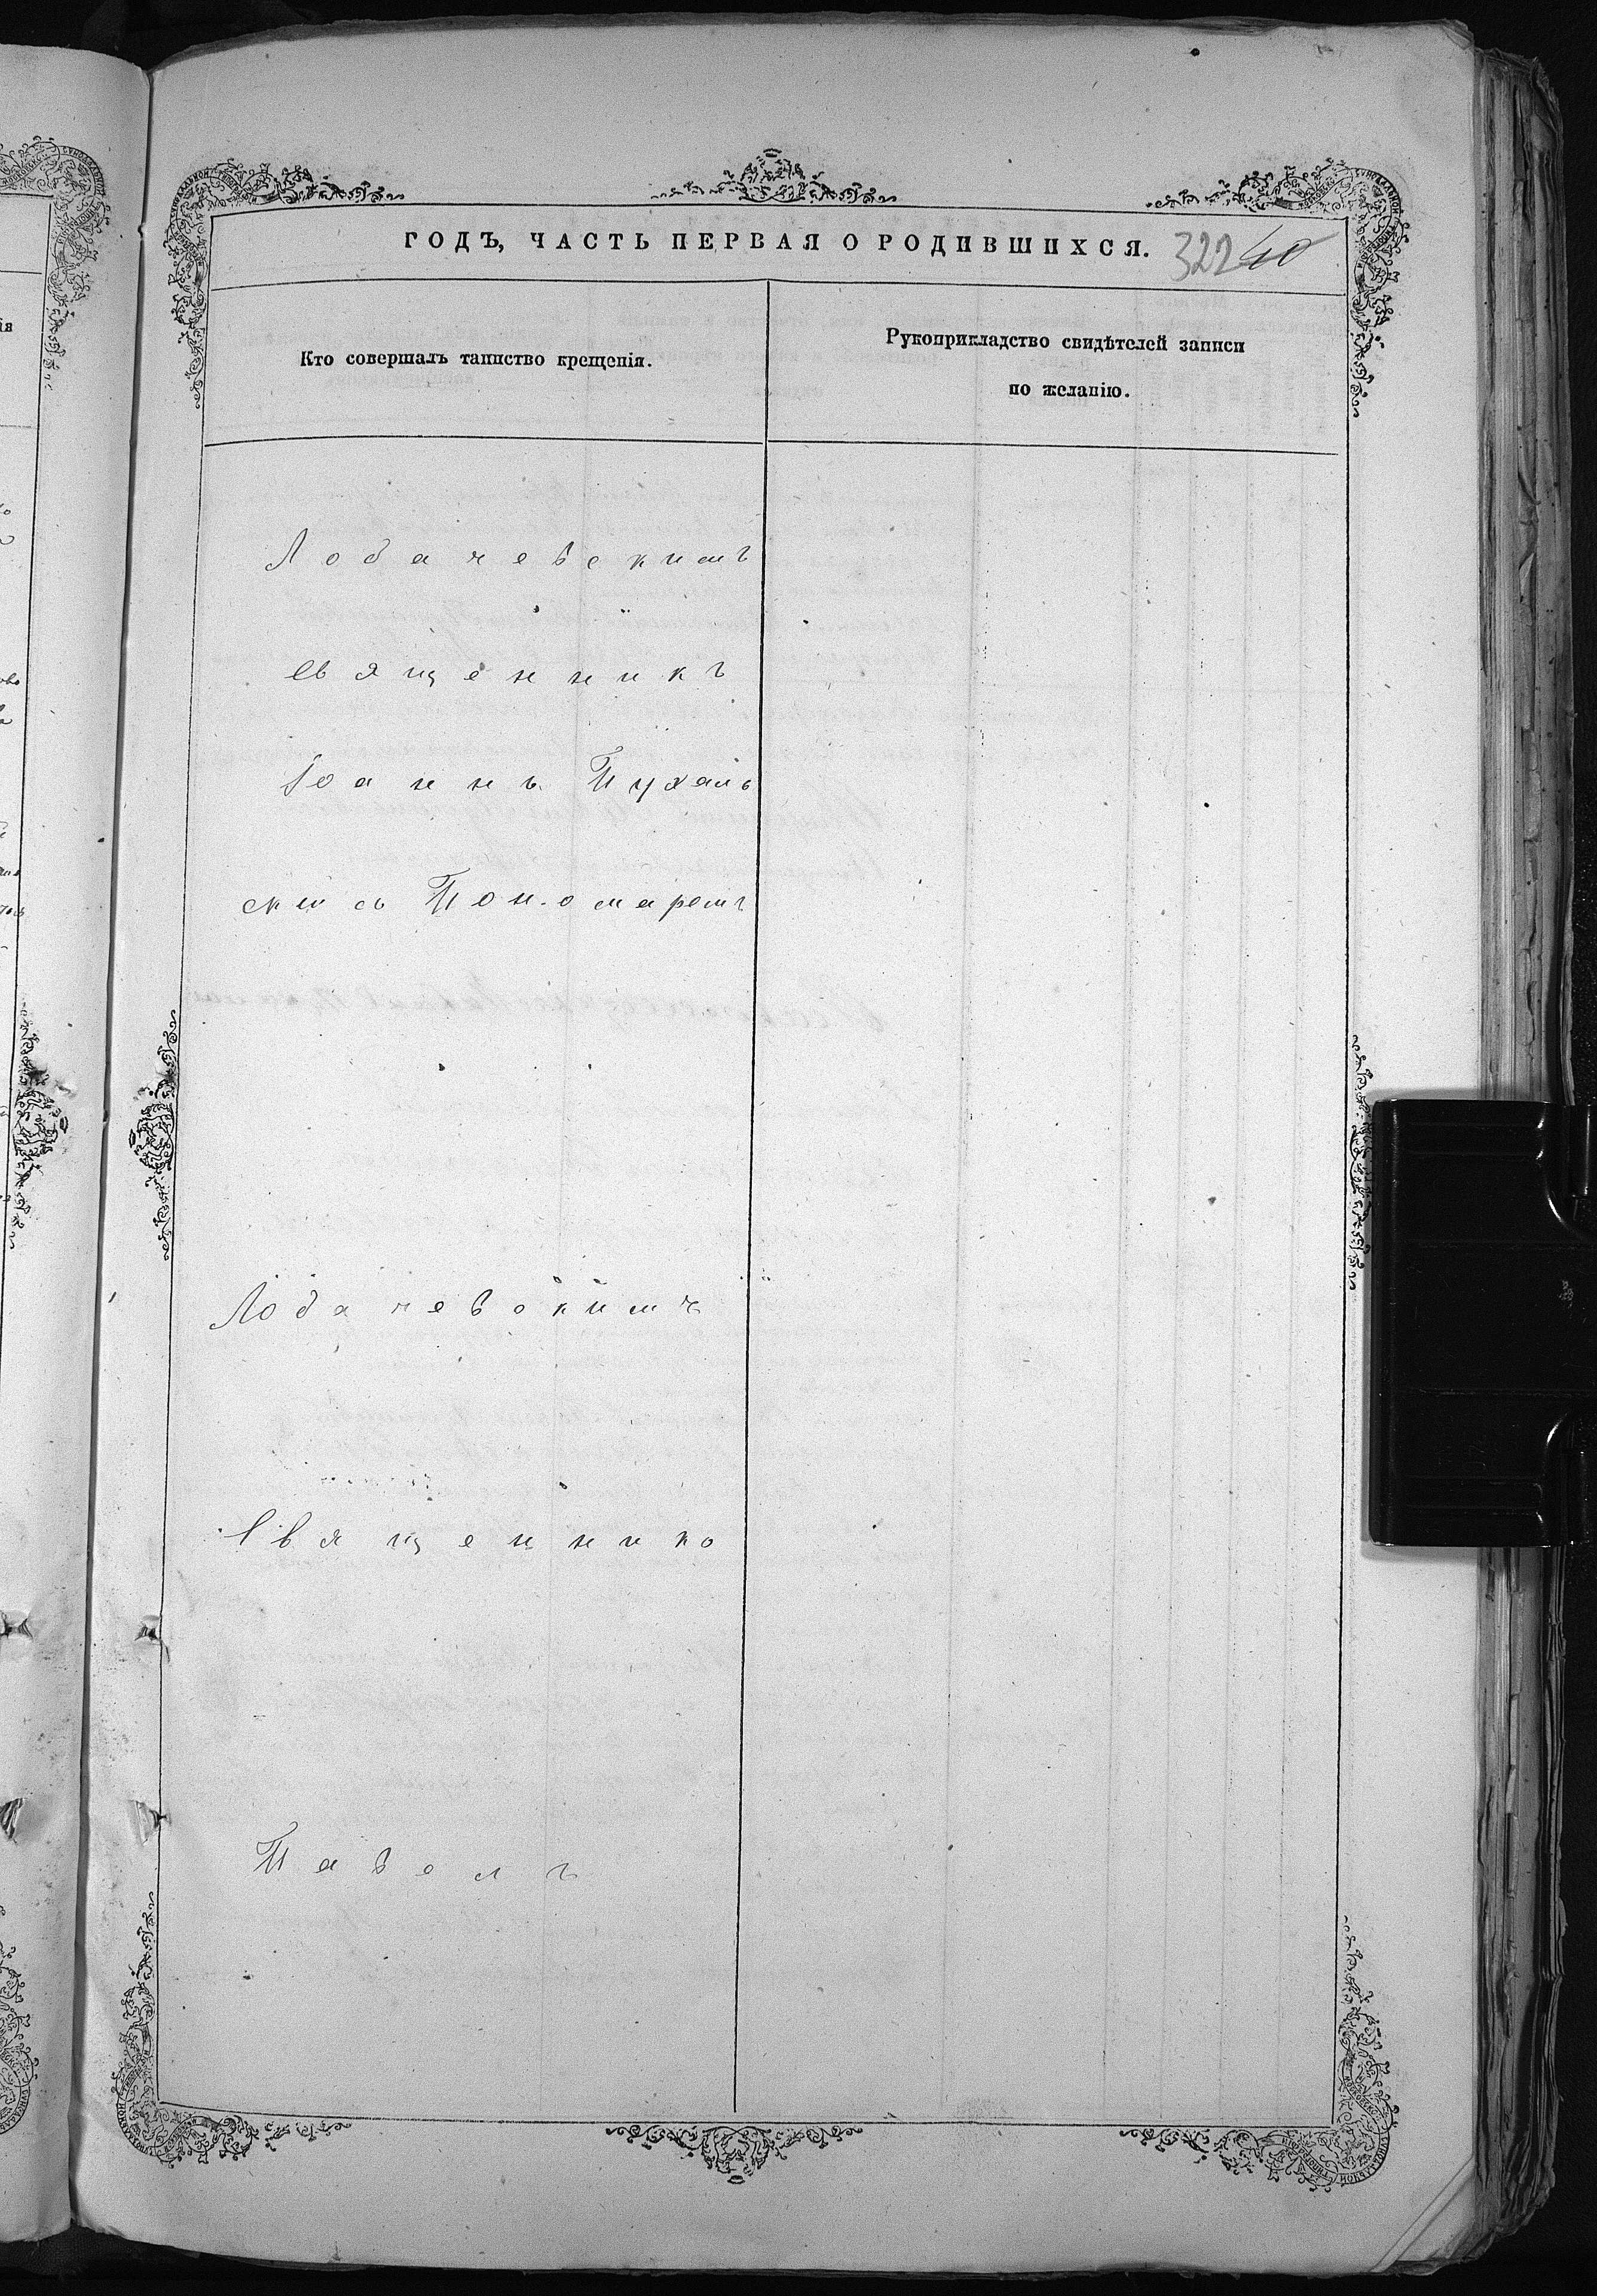 ГОДЪ, ЧАСТЬ ПЕРВАЯ О РОДИВШИХСЯ. 322 40
Кто совершалъ таинство крещенія.
Рукоприкладство свидѣтелей записи
по желанію.
Лобачевскимъ
Священникъ
Іоаннъ Пухаль
скій съ Пономаремъ
Лобачевскимъ
Священникъ
Павелъ